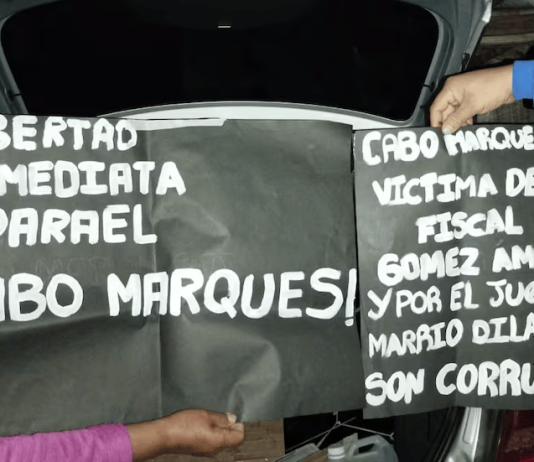 BERTAD
MEDIATA
PARAEL
ABO MARQUES!
CABO MARQUE
VICTIMA DE
FISCAL
GOMEZ AM
Y POR EL JUG
MARRIO DILA
SON CORRU